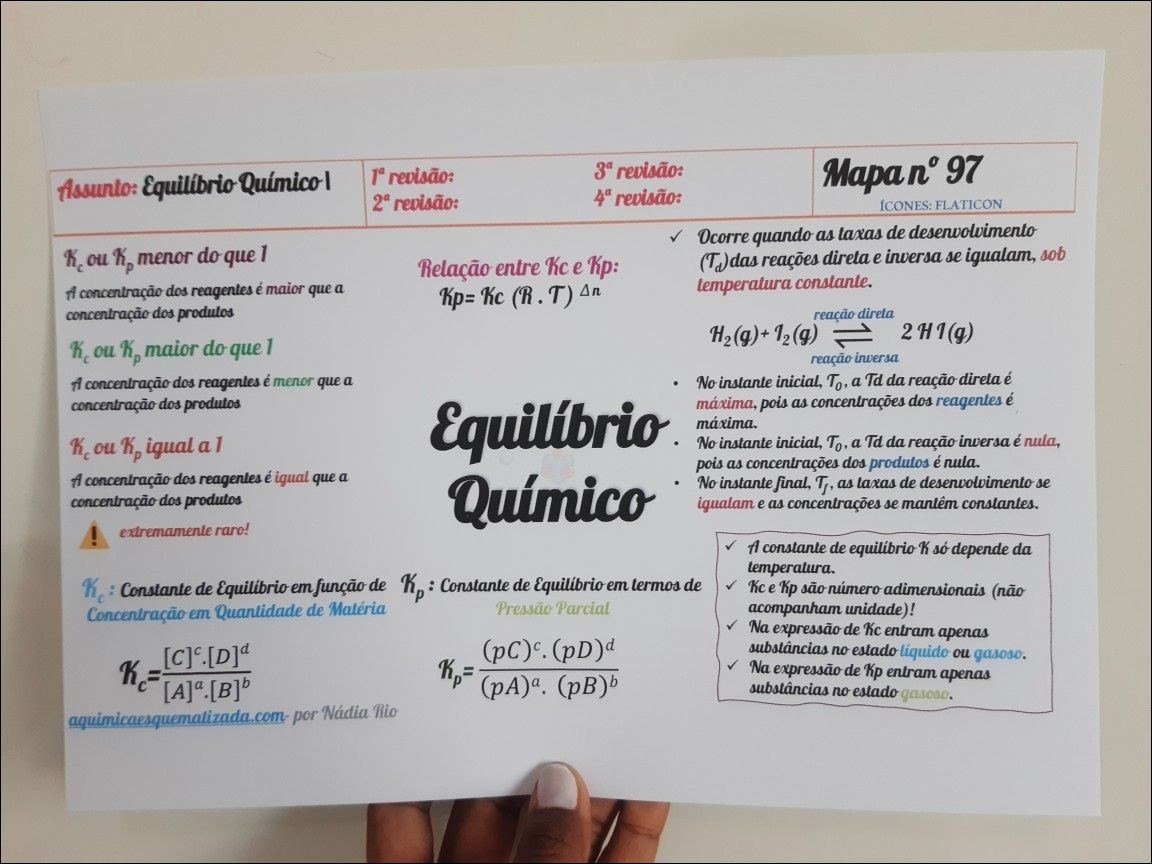 Assunto: Equilíbrio Químico I
1ª revisão:
2ª revisão:
3ª revisão:
4ª revisão:
Mapa nº 97
ÍCONES: FLATICON
Kc ou Kp menor do que 1
A concentração dos reagentes é maior que a
concentração dos produtos
Kc ou Kp maior do que 1
A concentração dos reagentes é menor que a
concentração dos produtos
Kc ou Kp igual a 1
A concentração dos reagentes é igual que a
concentração dos produtos
extremamente raro!
Relação entre Kc e Kp:
Kp= Kc (R . T) ^Δn
Equilíbrio
Químico
✓ Ocorre quando as taxas de desenvolvimento
(Td)das reações direta e inversa se igualam, sob
temperatura constante.
reação direta
H₂(g)+ I₂(g) ⇌ 2 H I(g)
reação inversa
• No instante inicial, T₀, a Td da reação direta é
máxima, pois as concentrações dos reagentes é
máxima.
• No instante inicial, T₀, a Td da reação inversa é nula,
pois as concentrações dos produtos é nula.
• No instante final, Tf, as taxas de desenvolvimento se
igualam e as concentrações se mantêm constantes.
Kc : Constante de Equilíbrio em função de
Concentração em Quantidade de Matéria
Kc=[C]^c.[D]^d
[A]^a.[B]^b
Kp : Constante de Equilíbrio em termos de
Pressão Parcial
Kp=(pC)^c.(pD)^d
(pA)^a. (pB)^b
✓ A constante de equilíbrio K só depende da
temperatura.
✓ Kc e Kp são número adimensionais (não
acompanham unidade)!
✓ Na expressão de Kc entram apenas
substâncias no estado líquido ou gasoso.
✓ Na expressão de Kp entram apenas
substâncias no estado gasoso.
aquimicaesquematizada.com- por Nádia Rio